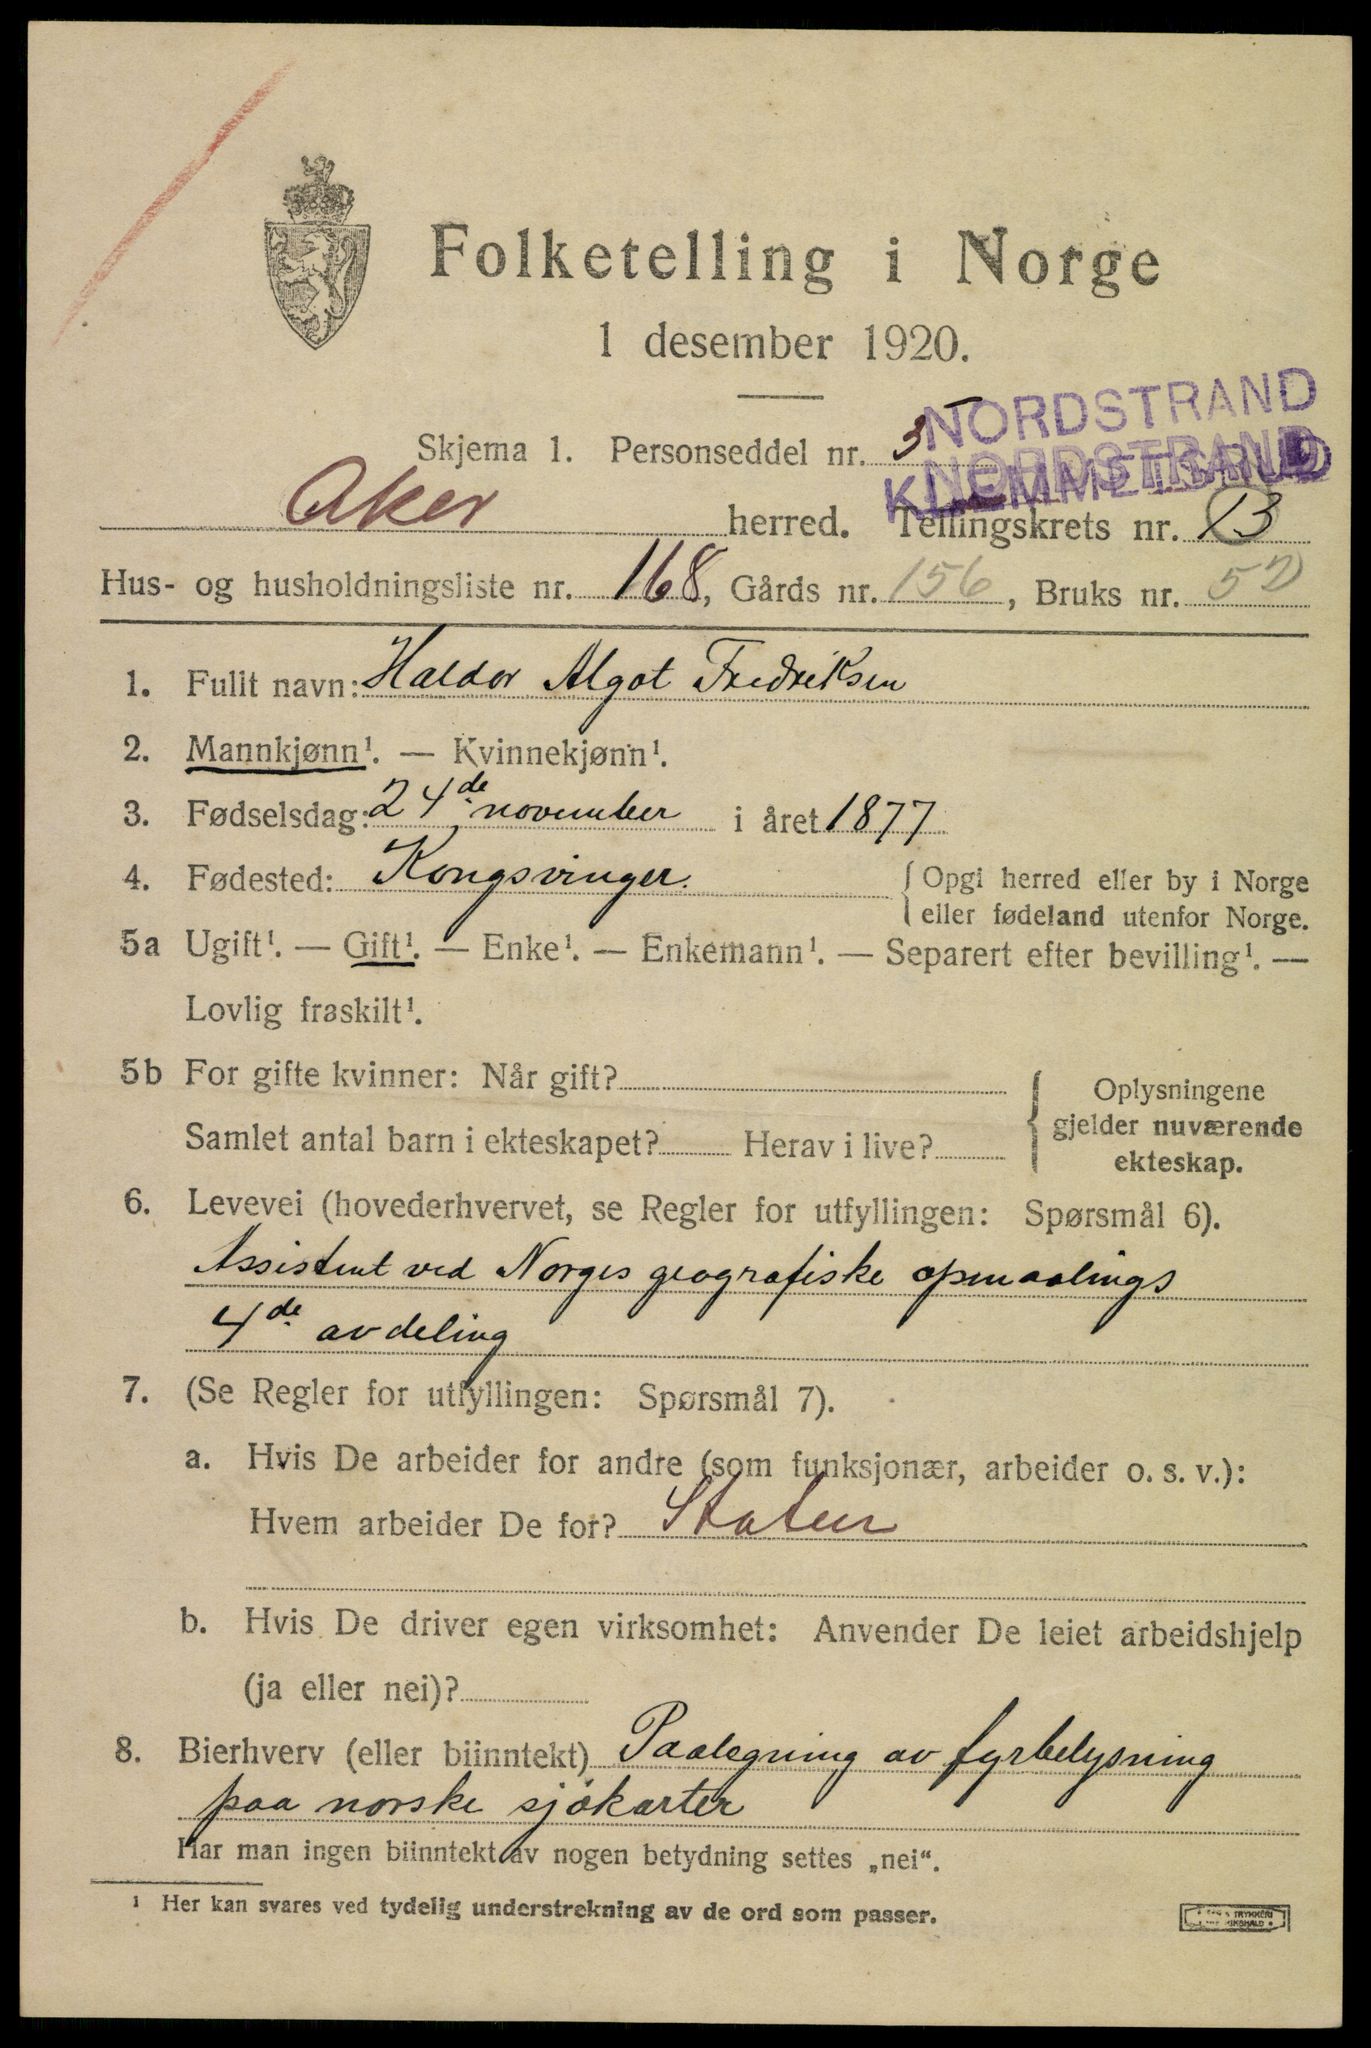 Folketelling i Norge
1 desember 1920.
NORDSTRAND
Skjema 1. Personseddel nr. 3
NORDSTRAND
KLEMMETSRUD
Aker herred. Tellingskrets nr. 13
Hus- og husholdningsliste nr. 168, Gårds nr. 156, Bruks nr. 52
1. Fullt navn: Haldor Algot Fredriksen
2. Mannkjønn¹. — Kvinnekjønn¹.
3. Fødselsdag: 24de november i året 1877
4. Fødested: Kongsvinger. { Opgi herred eller by i Norge
eller fødeland utenfor Norge.
5a Ugift¹. — Gift¹. — Enke¹. — Enkemann¹. — Separert efter bevilling¹. —
Lovlig fraskilt¹.
5b For gifte kvinner: Når gift?
Samlet antal barn i ekteskapet? Herav i live?
Oplysningene
gjelder nuværende
ekteskap.
6. Levevei (hovederhvervet, se Regler for utfyllingen: Spørsmål 6).
Assistent ved Norges geografiske opmaalings
4de avdeling
7. (Se Regler for utfyllingen: Spørsmål 7).
a. Hvis De arbeider for andre (som funksjonær, arbeider o. s. v.):
Hvem arbeider De for? Staten
b. Hvis De driver egen virksomhet: Anvender De leiet arbeidshjelp
(ja eller nei)?
8. Bierhverv (eller biinntekt) Paalegning av fyrbelysning
paa norske sjökarter
Har man ingen biinntekt av nogen betydning settes „nei“.
¹ Her kan svares ved tydelig understrekning av de ord som passer.